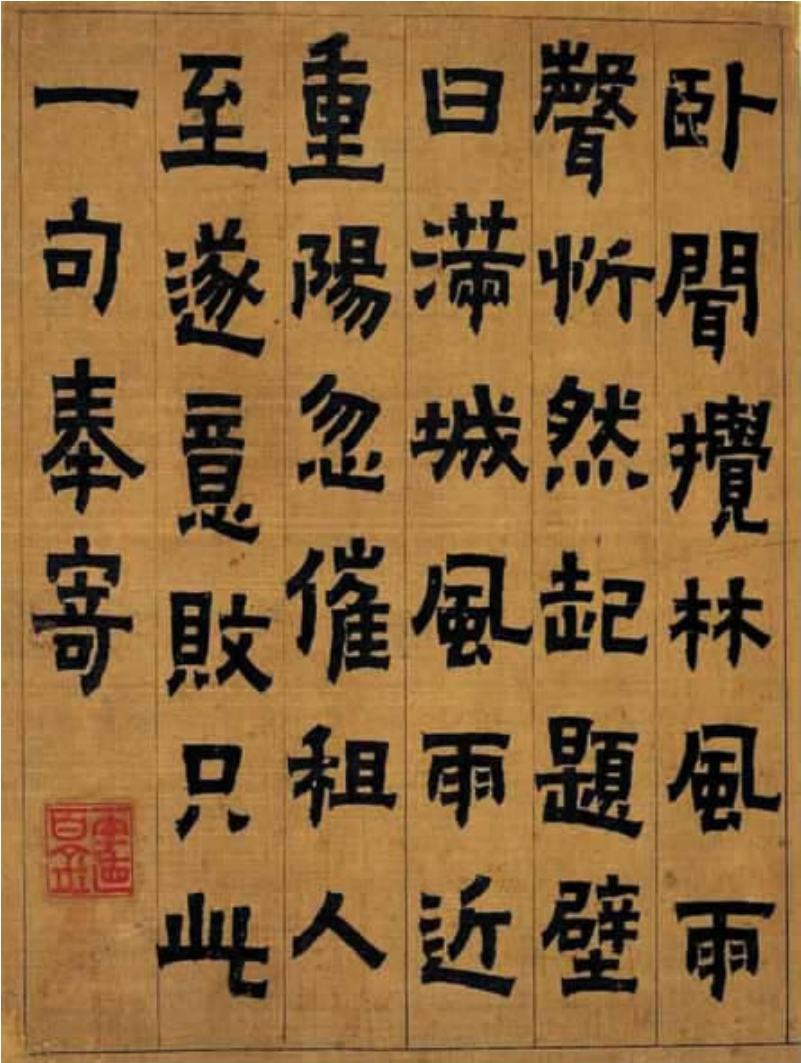 卧聞攪林風雨
聲忻然起題壁
曰滿城風雨近
重陽忽催租人
至遂意敗只此
一句奉寄